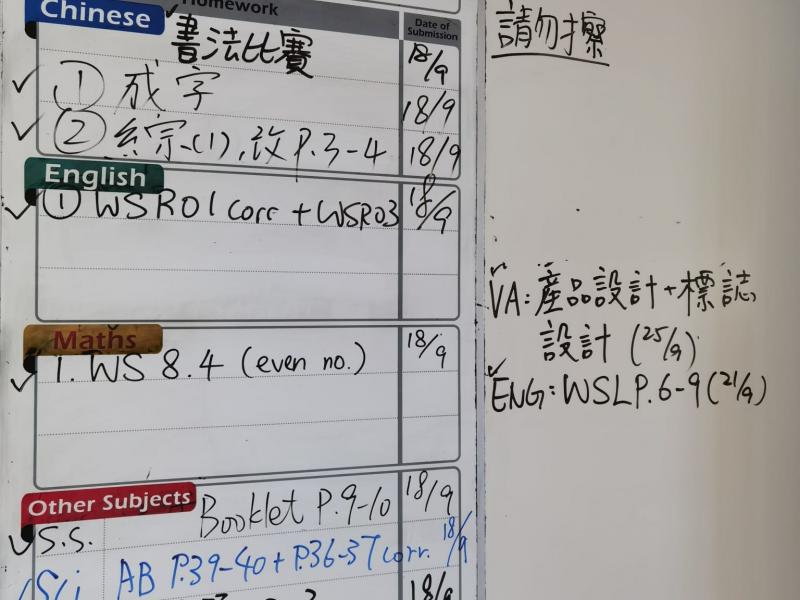 Homework
Chinese
Date of Submission
書法比賽 18/9
① 成字 18/9
② 綜(1), 改 P.3-4 18/9
English
① WSR01 corr + WSR03 18/9
Maths
1. WS 8.4 (even no.) 18/9
Other Subjects
S.S. Booklet P.9-10 18/9
Sci AB P.39-40 + P.36-37 corr. 18/9
18/9
請勿擦
VA: 產品設計+標誌
設計 (25/9)
ENG: WSLP.6-9 (21/9)